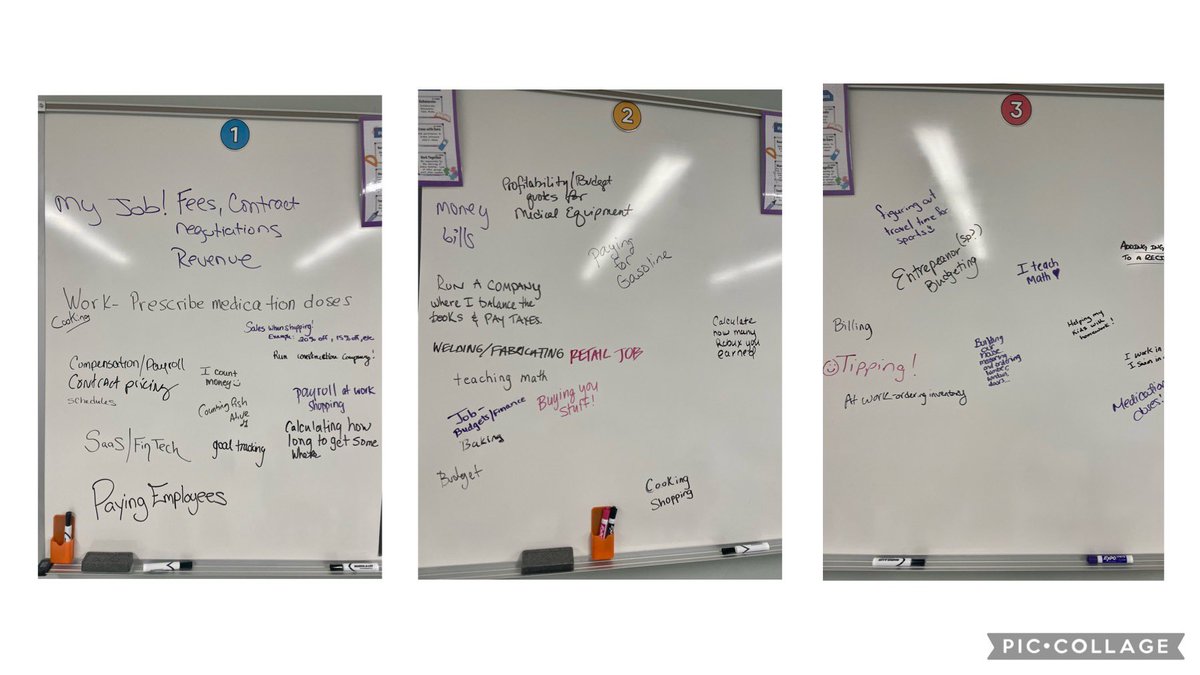 1
My Job! Fees, Contract
negotiations
Revenue
Work- Prescribe medication doses
Cooking
Sales when shopping!
Example: 20% off, 15% off, etc
Run construction company!
Compensation/Payroll
Contract pricing
schedules
I count
money
Counting fish
Alive
payroll at work
shopping
SaaS/FinTech
goal tracking
Calculating how
long to get some
where
Paying Employees
2
Work Together
Profitability/Budget
quotes for
Medical Equipment
Money
bills
Paying
for
Gasoline
RUN A COMPANY
where I balance the
books & PAY TAXES.
Calculate
how many
Robux you
earned
WELDING/FABRICATING
RETAIL JOB
teaching math
Buying you
stuff!
Job-
Budgets/Finance
Baking
Budget
Cooking
Shopping
3
figuring out
travel time for
sports
Entrepeanor (sp?)
Budgeting
I teach
Math
ADDING ING
TO A RECI
Billing
Helping my
kids with
homework!
Tipping!
Building
our
house
measuring
and ordering
lumber
windows
doors...
I work in
I swim in
At work-ordering inventory
Medication
doses!
EXPO
PIC•COLLAGE